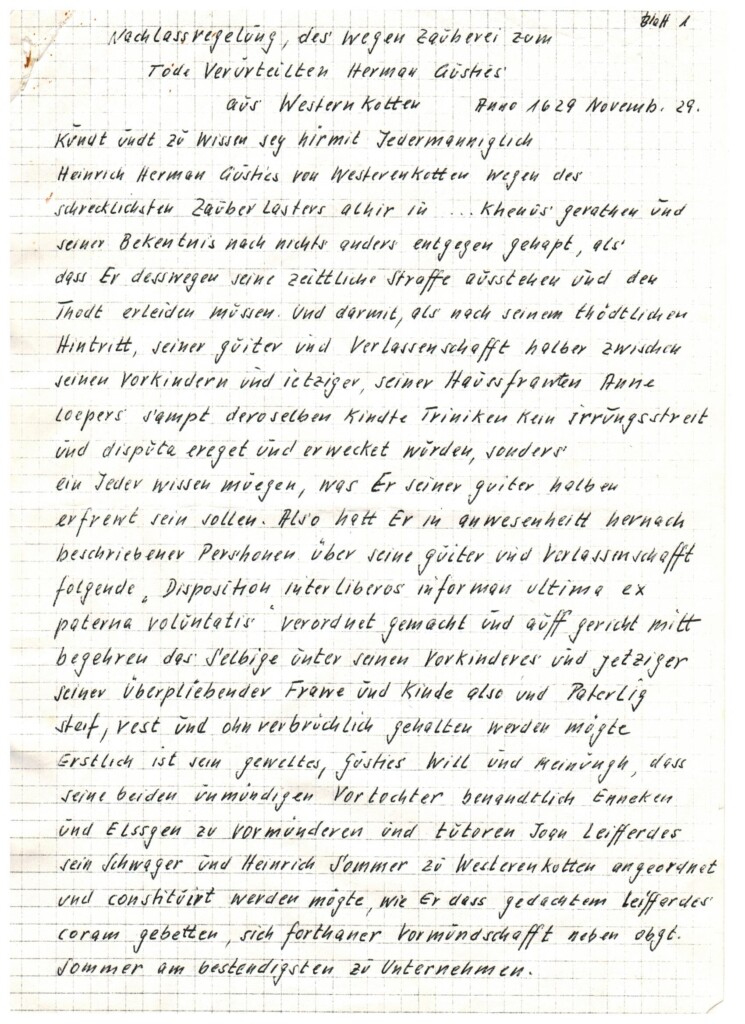 Blatt 1
Nachlassregelung, des wegen Zauberei zum
Tode Verurteilten Herman Güsties
aus Westernkotten Anno 1629 Novemb. 29.
Kundt undt zu wissen sey hirmit Jedermanniglich
Heinrich Herman Güsties von Westerenkotten wegen des
schrecklichsten Zauberlasters alhir in ... Khenus gerathen und
seiner Bekentnis nach nichts anders entgegen gehapt, als
dass Er desswegen seine zeittliche Straffe ausstehen und den
Thodt erleiden müssen. Und darmit, als nach seinem thödtlichen
Hintritt, seiner guiter und Verlassenschafft halber zwischen
seinen Vorkindern und ietziger, seiner Haussfrawen Anne
Loepers sampt deroselben Kindte Triniken kein irrungsstreit
und disputa ereget und erwecket würden, sonders
ein Jeder wissen müegen, was Er seiner guiter halben
erfrewt sein sollen. Also hatt Er in anwesenheitt hernach
beschriebener Pershonen über seine güiter und Verlassenschafft
folgende „Disposition interliberos informan ultima ex
paterna voluntatis" verordnet gemacht und auff gericht mitt
begehren das Selbige unter seinen Vorkinderes und jetziger
seiner überpliebender Frawe und Kinde also und Paterlig
steif, vest und ohnverbrüchlich gehalten werden mögte
Erstlich ist sein geweltes, Güsties Will und meinungh, dass
seine beiden unmündigen Vortochter benandtlich Enneken
und Elssgen zu Vormünderen und tutoren Joan Leifferdes
sein Schwager und Heinrich Sommer zu Westerenkotten angeordnet
und constituirt werden mögte, wie Er dass gedachtem Leiffardes
coram gebetten, sich forthaner Vormundschafft neben obgt.
Sommer am bestendigsten zu Unternehmen.